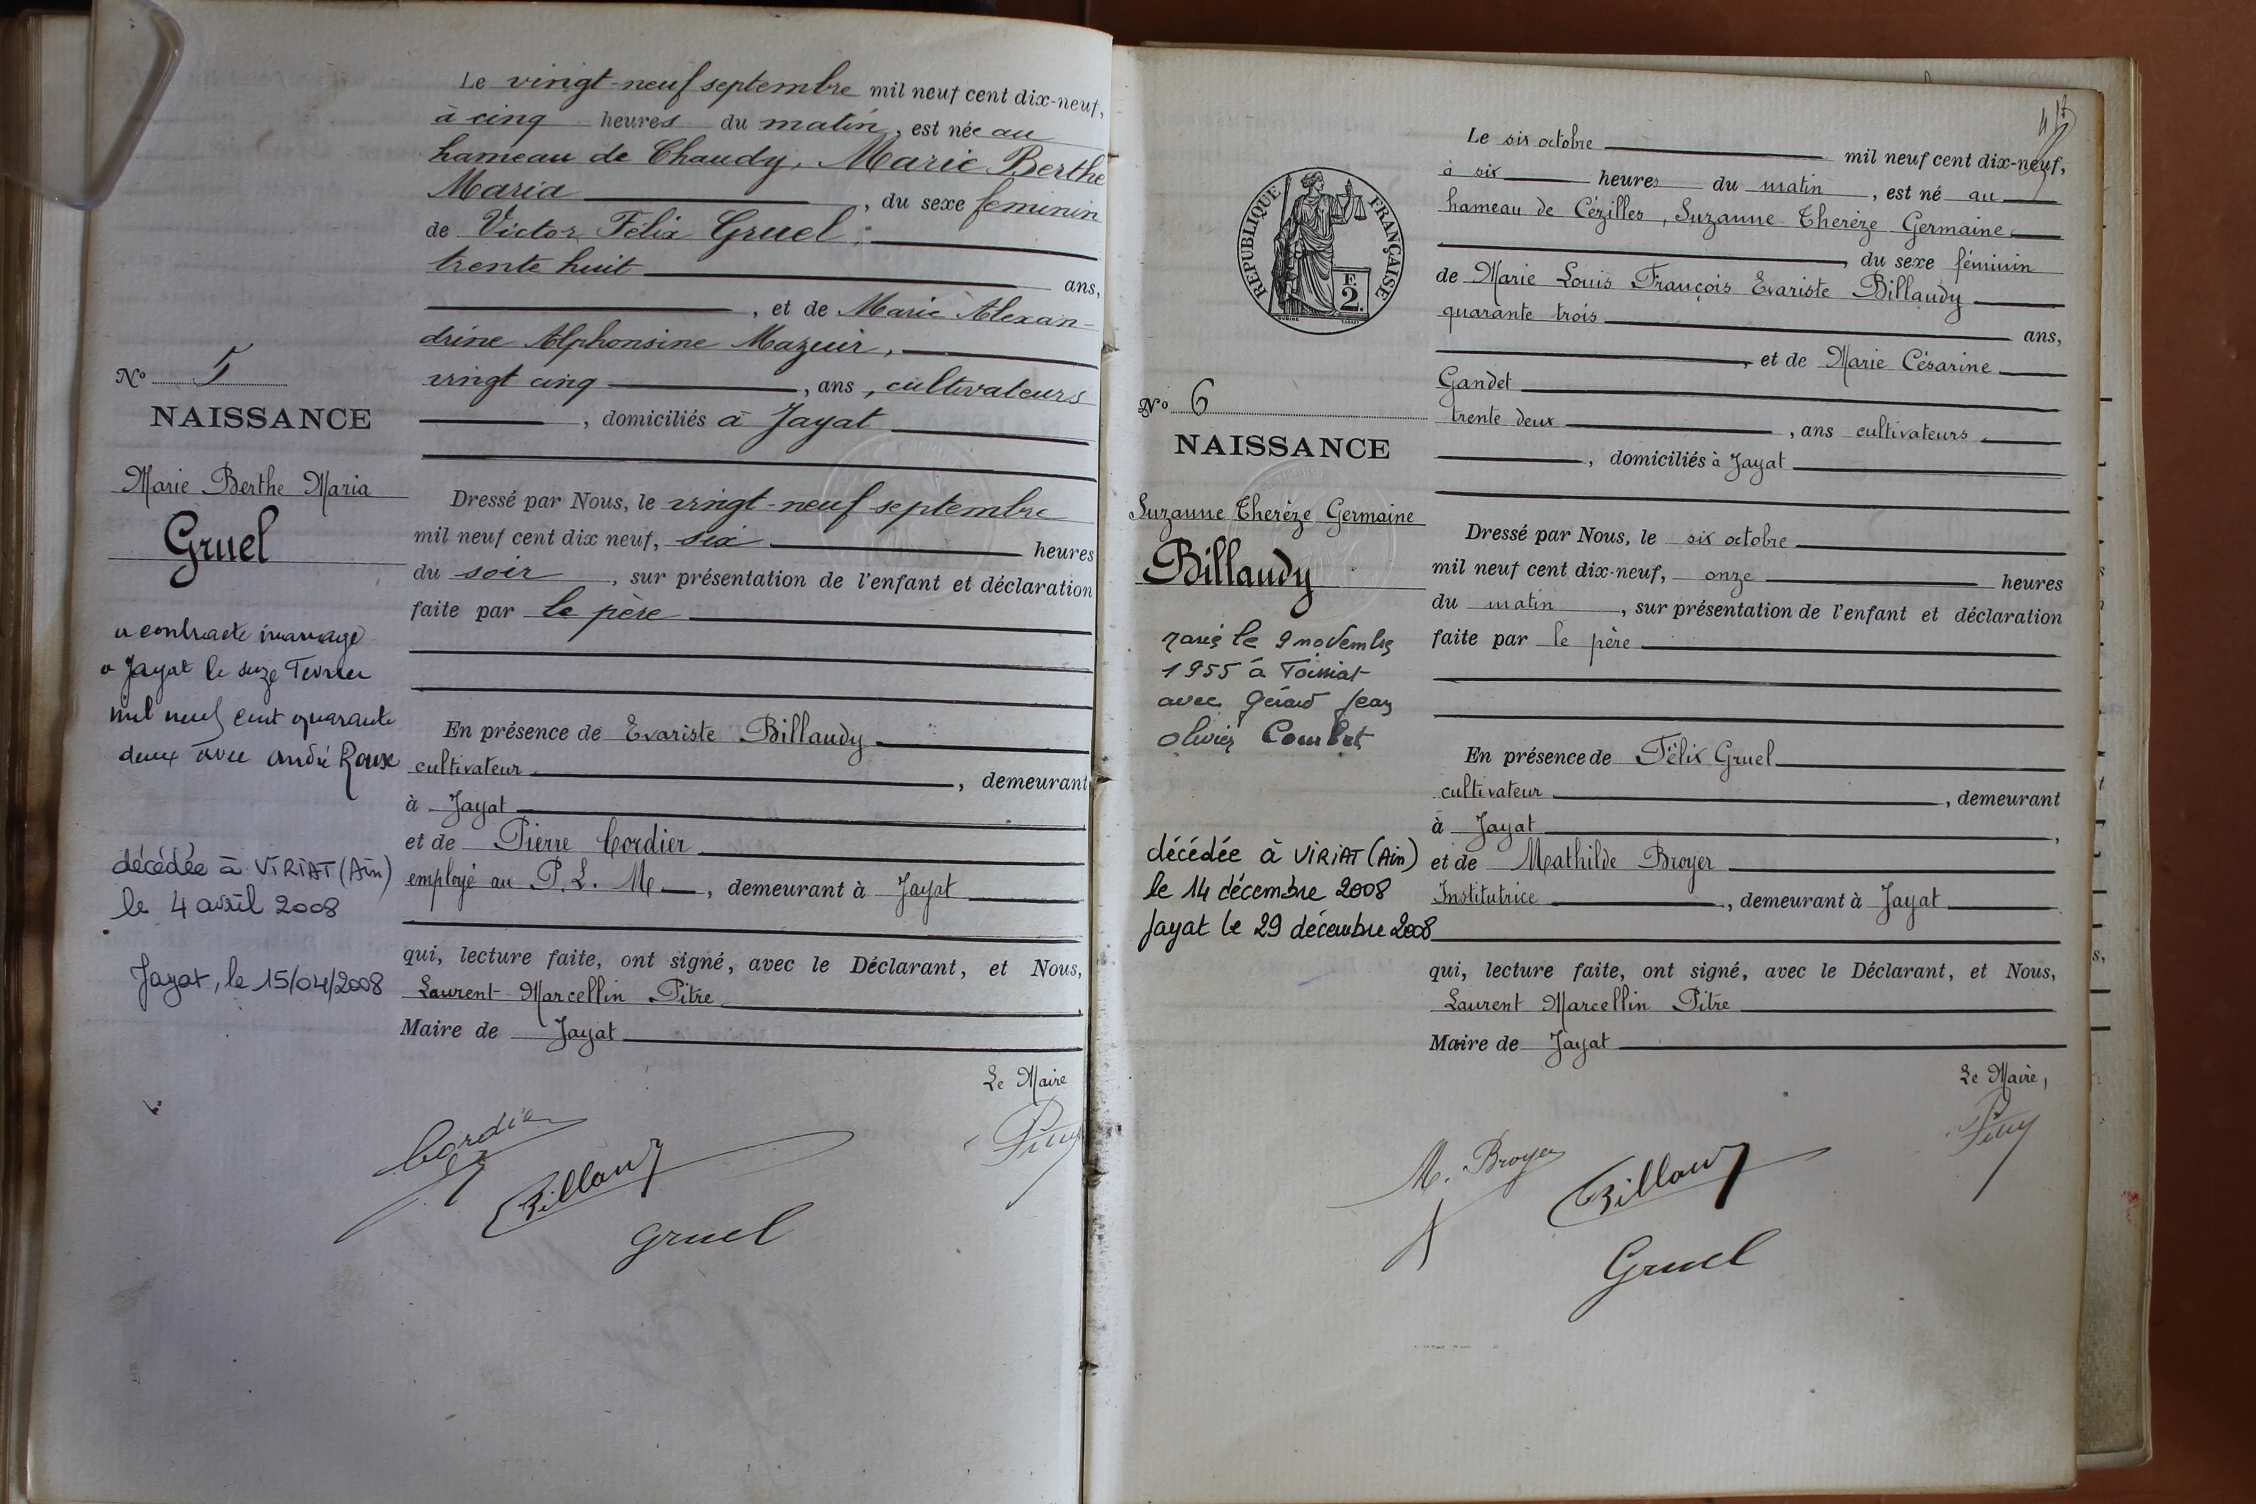 Le vingt-neuf septembre mil neuf cent dix-neuf,
à cinq heures du matin, est née au
hameau de Chaudy, Marie Berthe
Maria, du sexe féminin
de Victor Félix Gruel,
trente huit ans,
, et de Marie Alexan-
drine Alphonsine Mazuir,
vingt cinq, ans, cultivateurs
, domiciliés à Jayat
No 5
NAISSANCE
Marie Berthe Maria
Gruel
a contracté mariage
a Jayat le seize Fevrier
mil neuf cent quarante
deux avec André Roux
décédée à VIRIAT (Ain)
le 4 avril 2008
Jayat, le 15/04/2008
Dressé par Nous, le vingt-neuf septembre
mil neuf cent dix neuf, six heures
du soir, sur présentation de l'enfant et déclaration
faite par le père
En présence de Evariste Billaudy
cultivateur, demeurant
à Jayat
et de Pierre Cordier
employé au P. L. M, demeurant à Jayat
qui, lecture faite, ont signé, avec le Déclarant, et Nous,
Laurent Marcellin Pitre
Maire de Jayat
Le Maire
Cordier
Billaudy
Gruel
RÉPUBLIQUE FRANÇAISE
F.
2.
Le six octobre mil neuf cent dix-neuf,
à six heures du matin, est né au
hameau de Cézilles, Suzanne Therèze Germaine
, du sexe féminin
de Marie Louis François Evariste Billaudy
quarante trois ans,
, et de Marie Césarine
Gandet
trente deux, ans cultivateurs
, domiciliés à Jayat
No 6
NAISSANCE
Suzanne Therèze Germaine
Billaudy
le 9 novembre
1955 à
avec Gérard Jean
Olivier
décédée à VIRIAT (Ain)
le 14 décembre 2008
Jayat le 29 décembre 2008
Dressé par Nous, le six octobre
mil neuf cent dix-neuf, onze heures
du matin, sur présentation de l'enfant et déclaration
faite par le père
En présence de Félix Gruel
cultivateur, demeurant
à Jayat,
et de Mathilde Broyer
Institutrice, demeurant à Jayat
qui, lecture faite, ont signé, avec le Déclarant, et Nous,
Laurent Marcellin Pitre
Maire de Jayat
Le Maire,
M. Broyer
Billaudy
Gruel